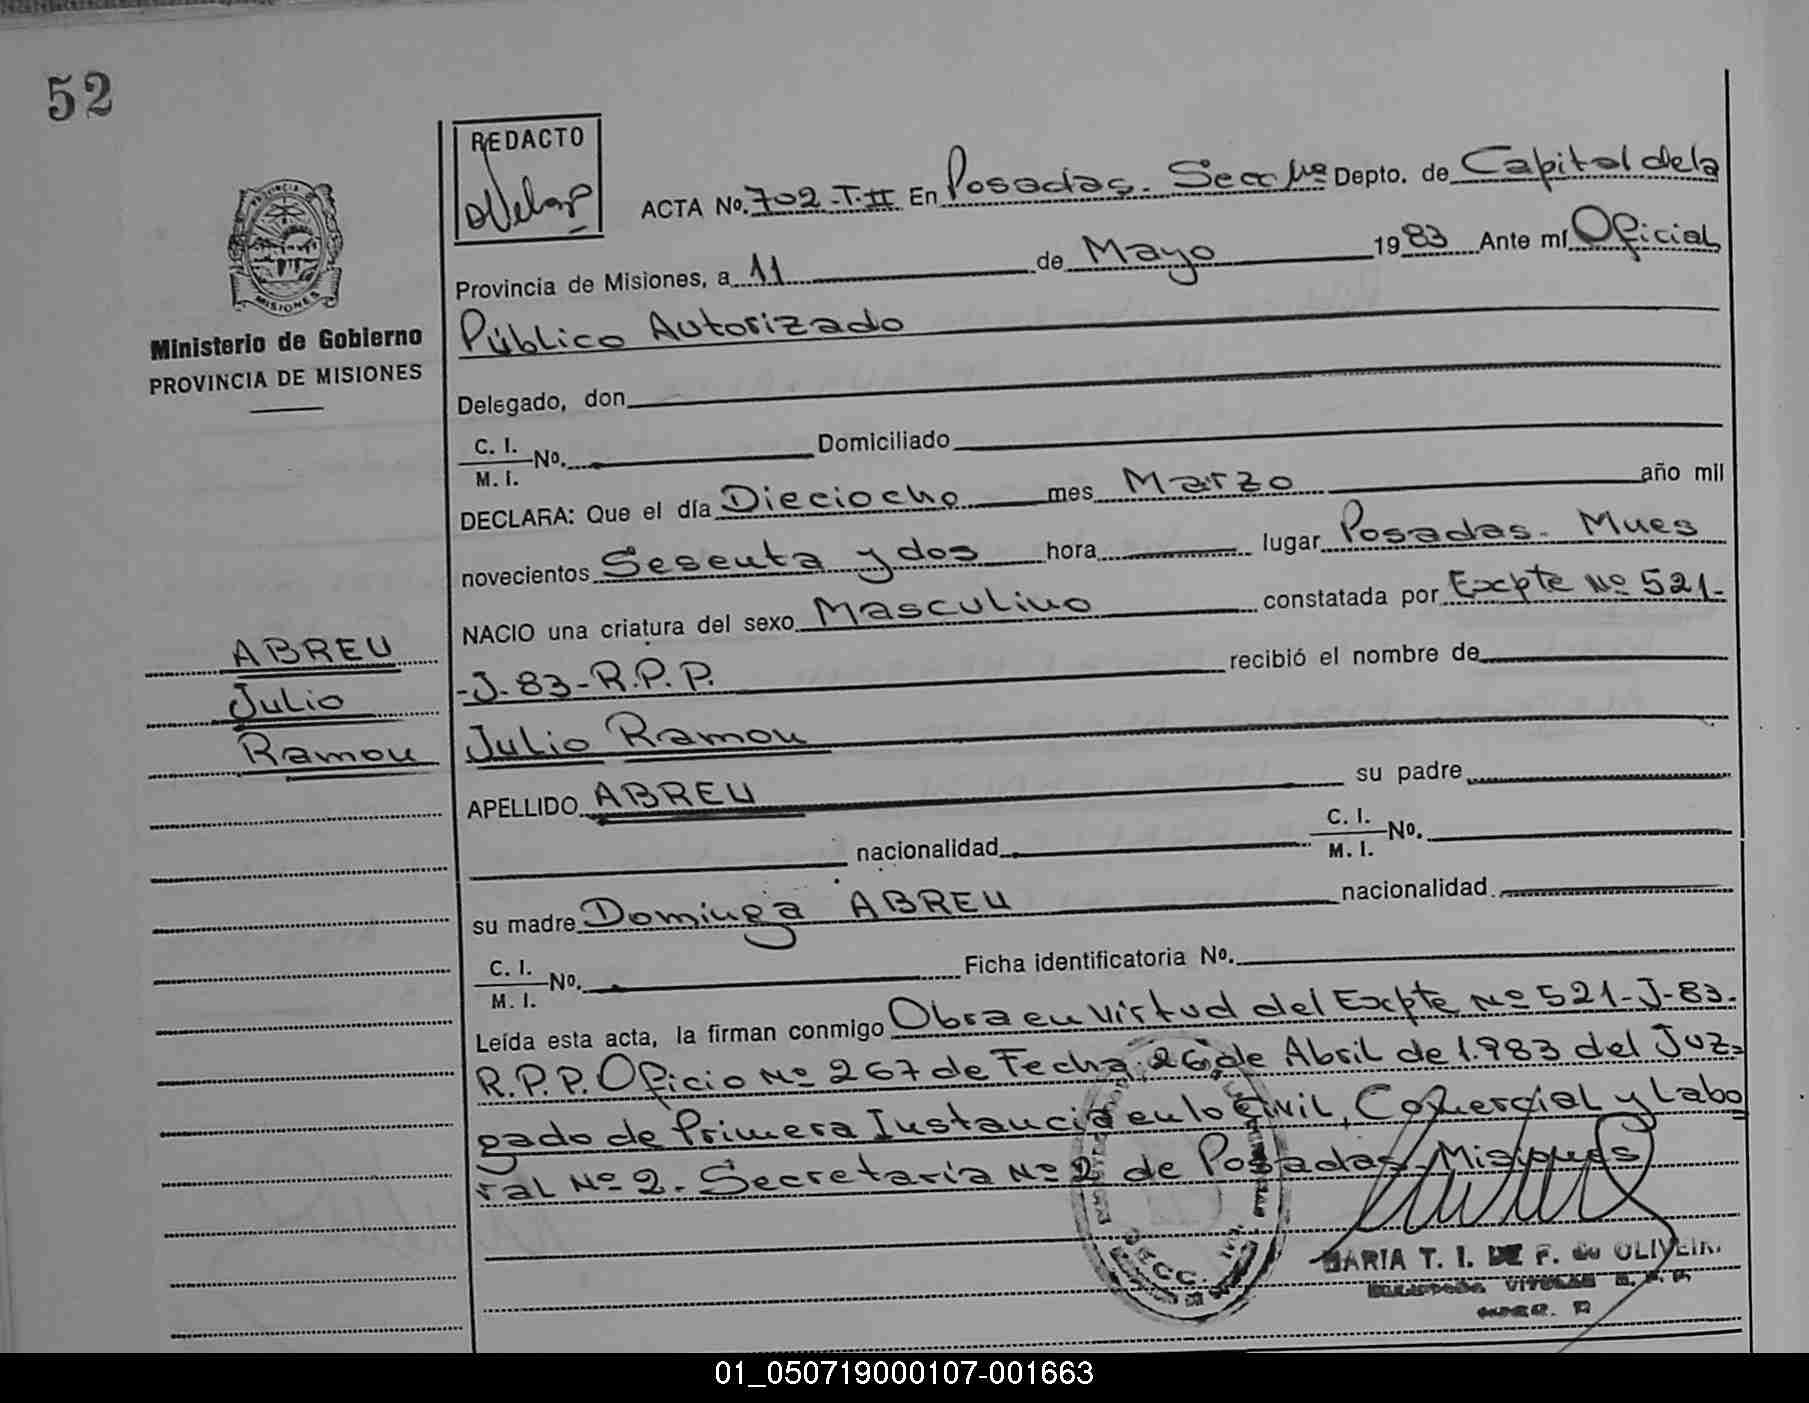 52
REDACTO
ACTA No. 702-T-II En Posadas. Secc Depto. de Capital de la
PROVINCIA
MISIONES
Provincia de Misiones, a 11 de Mayo 1983 Ante mí Oficial
Público Autorizado
Ministerio de Gobierno
PROVINCIA DE MISIONES
Delegado, don
C. I.
M. I.
No. Domiciliado
DECLARA: Que el día Dieciocho mes Marzo año mil
novecientos Sesenta y dos hora lugar Posadas. Mnes
NACIO una criatura del sexo Masculino constatada por Excpte Nº 521-
-J-83-R.P.P. recibió el nombre de
ABREU
Julio
Ramon
Julio Ramon
APELLIDO ABREU su padre
nacionalidad C. I.
M. I. No.
su madre Dominga ABREU nacionalidad
C. I.
M. I. No. Ficha identificatoria No.
Leída esta acta, la firman conmigo Obra en virtud del Excpte Nº 521-J-83.
R.P.P. Oficio Nº 267 de Fecha 26 de Abril de 1.983 del Juz-
gado de Primera Instancia en lo Civil, Comercial y Labo
ral Nº 2. Secretaria Nº 2 de Posadas. Misiones
MARIA T. I. DE F. de OLIVEIR
01_050719000107-001663